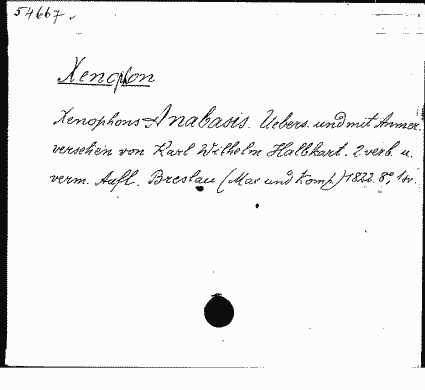 54667.
Xenophon
Xenophons Anabasis. Uebers. und mit Anmer.
versehen von Karl Wilhelm Halbkart. 2 verb. u.
verm. Aufl. Breslau (Max und Komp.) 1822. 8°, 1 Bv.